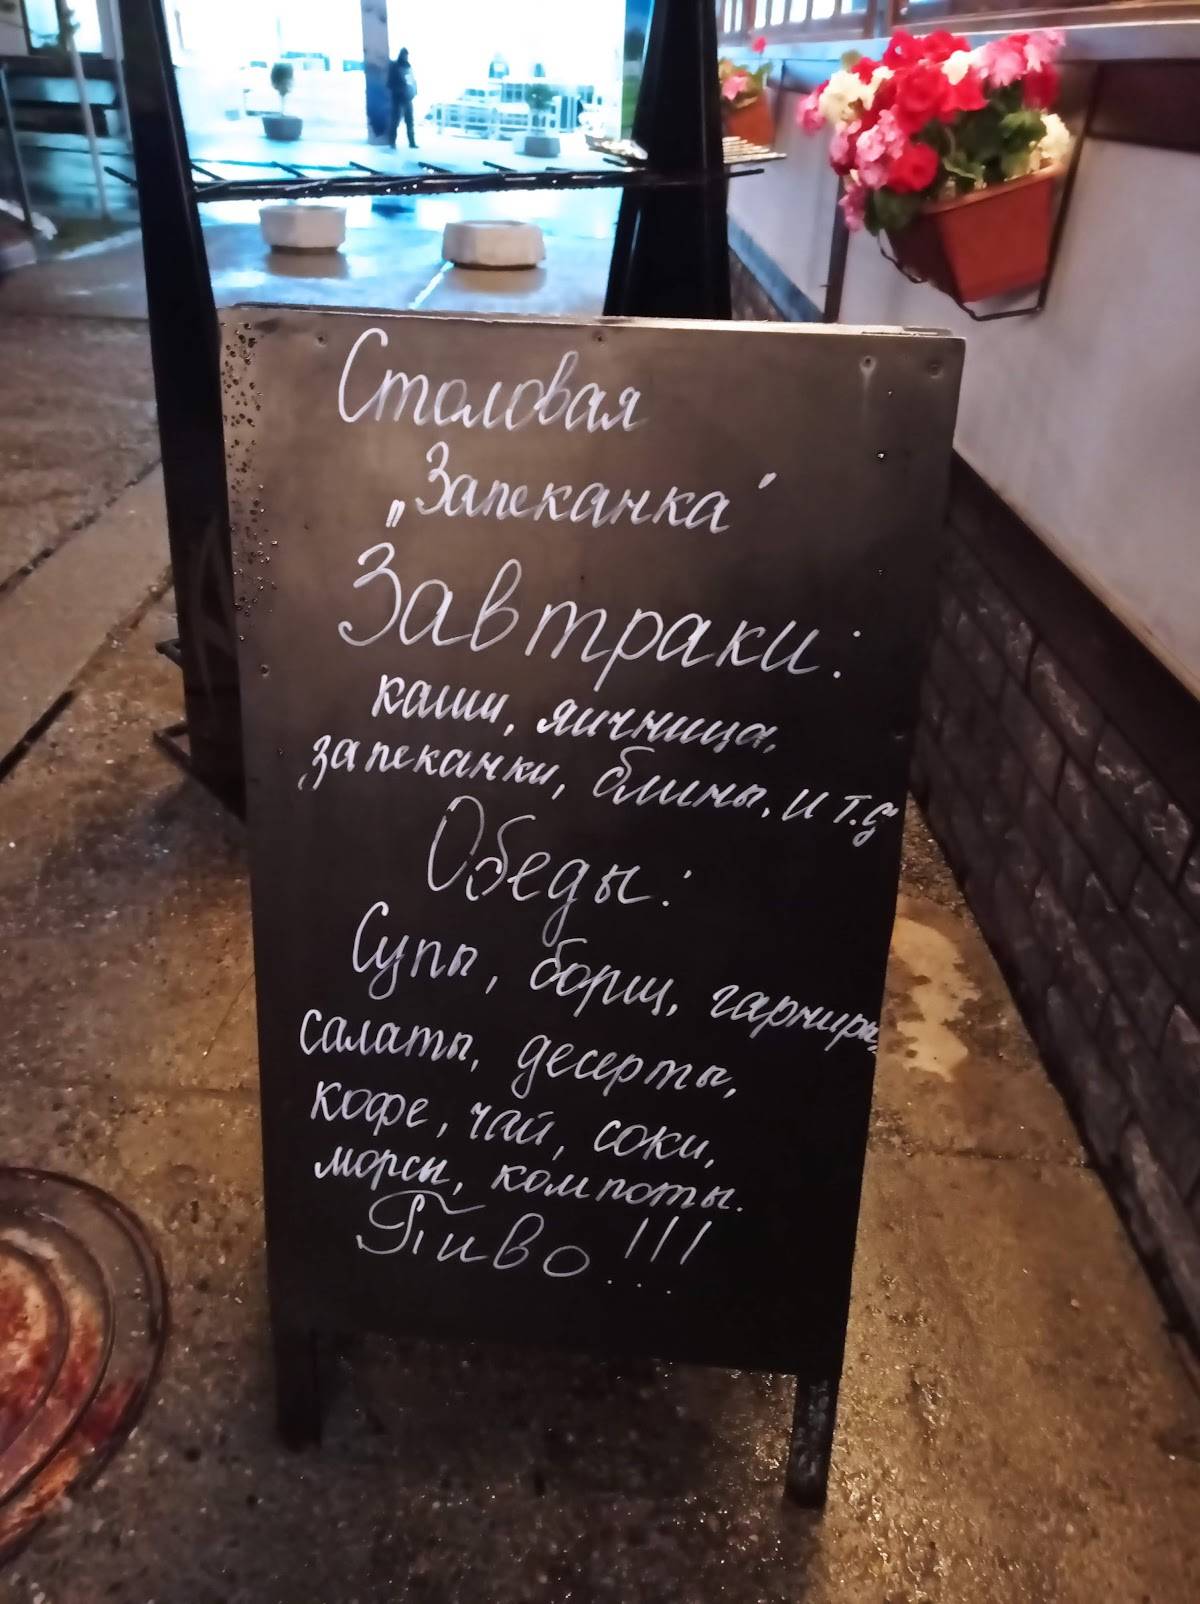 Столовая
„Запеканка"
Завтраки:
каши, яичница,
запеканки, блины, и т.д
Обеды:
Супы, борщ, гарниры,
салаты, десерты,
кофе, чай, соки,
морсы, компоты.
Пиво!!!